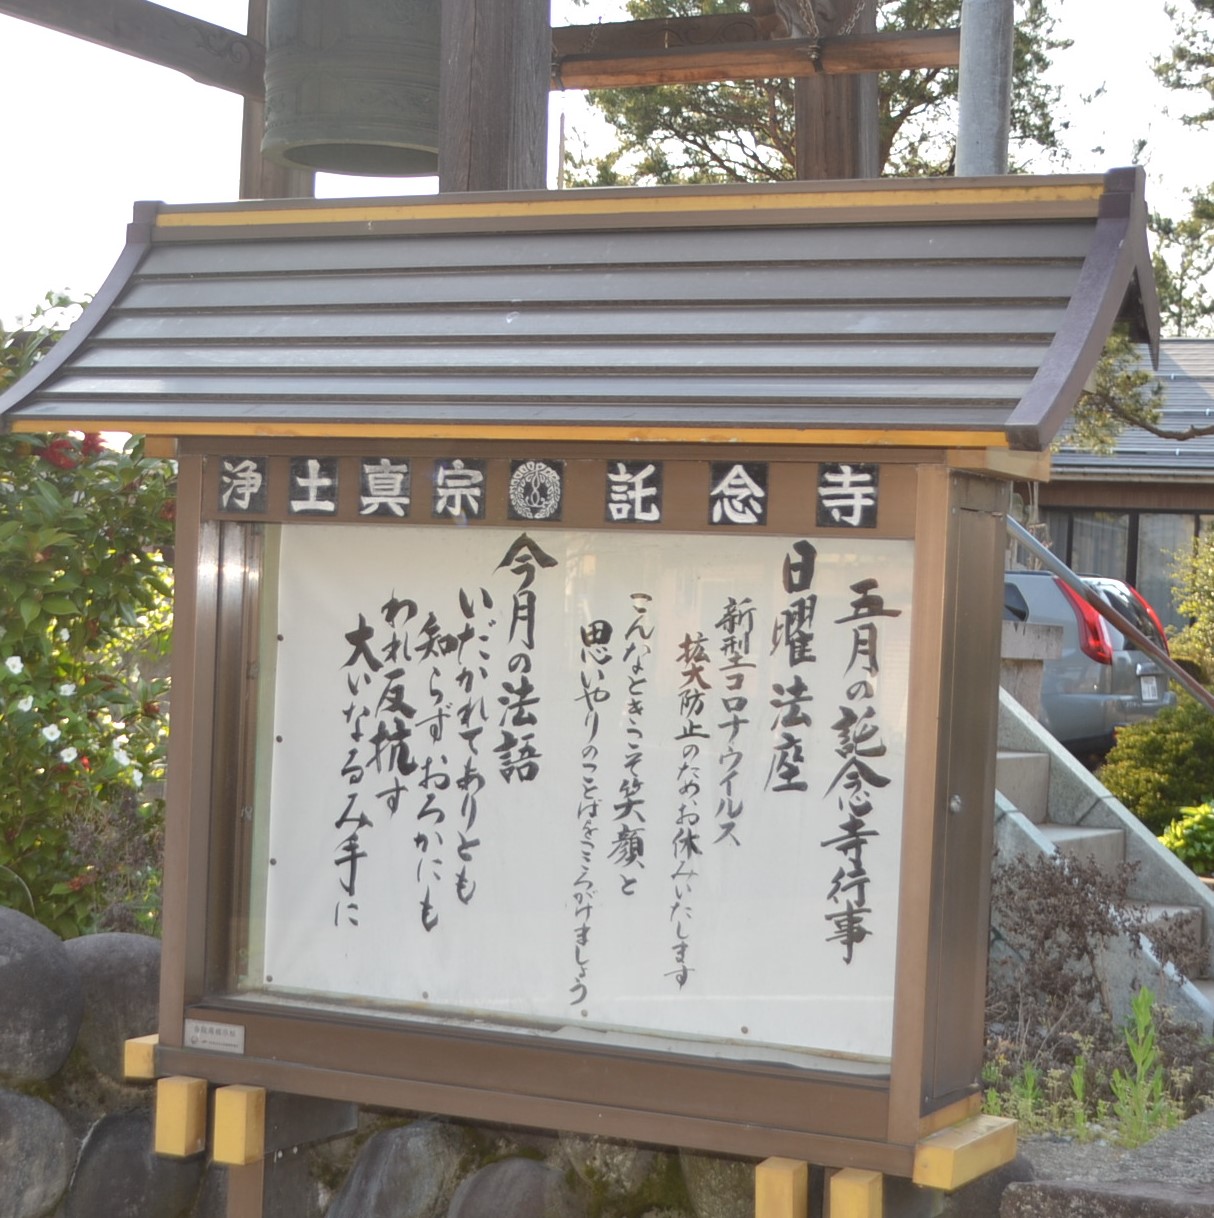 浄土真宗 託念寺
五月の託念寺行事
日曜法座
新型コロナウイルス
拡大防止のため、お休みいたします
こんなときこそ笑顔と
思いやりのことばをこころがけましょう
今月の法語
いだかれてありとも
知らずおろかにも
われ反抗す
大いなるみ手に